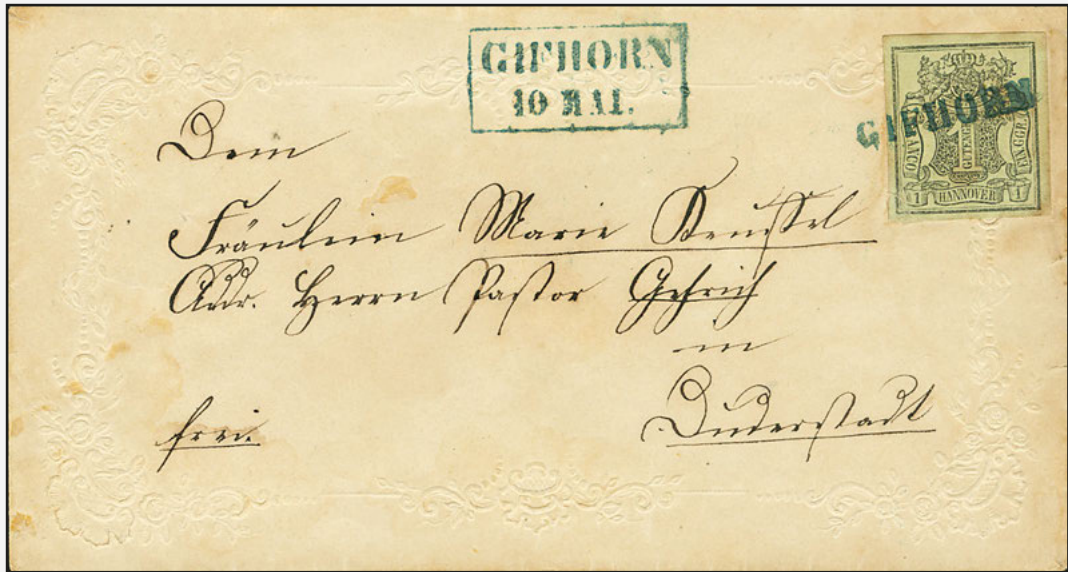 GIFHORN
10 MAI.
GIFHORN
FRANCO
1
GUTENGR.
EIN GGR.
1 HANNOVER 1
Dem
Fräulein Marie
Adr. Herrn Pastor Gehrich
in
Duderstadt
frei.